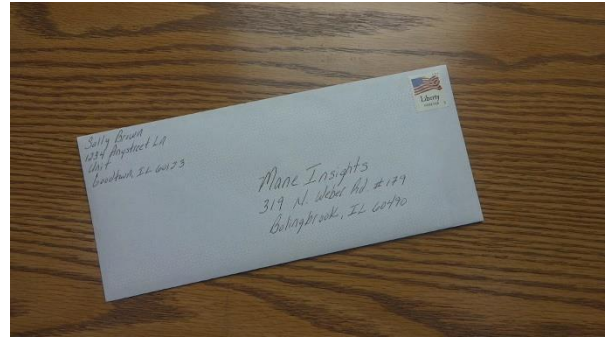 Sally Brown
1234 Anystreet LN
Unit
Goodtown, IL 60123
Liberty
Mane Insights
319 N. Weber Rd #179
Bolingbrook, IL 60490